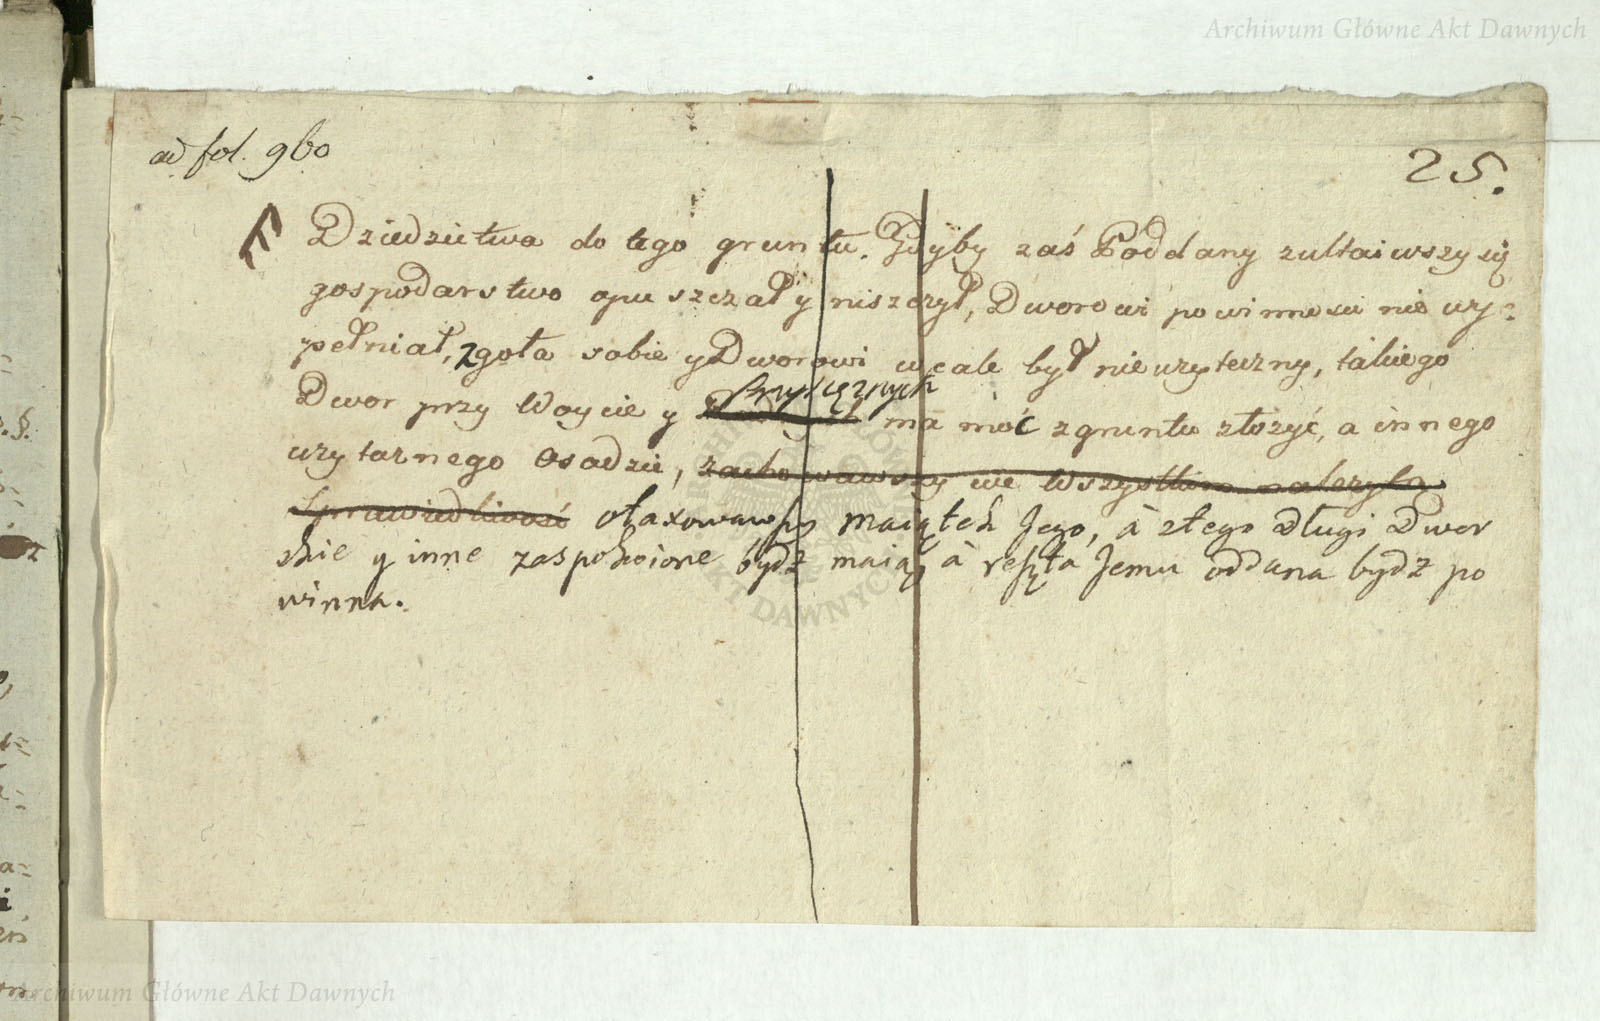 Archiwum Główne Akt Dawnych
ad fol. 960
25.
Dziedzictwa do tego gruntu. Gdyby zaś Poddany zultaiwszy się
gospodarstwo opuszczał y niszczył, Dworowi powinnosci nie wy:
pełniał, zgoła sobie y Dworowi wcale był nieuzyteczny, takiego
Dwor przy Woycie y Przysięznych ma móć zgruntu złożyć, a innego
uzytecznego Osadzić, zachowawszy we Wszystkim należytą
Sprawiedliwość otaxowawszy maiątek Jego, à ztego Długi Dwor
skie y inne zaspokoione bydź maią, à reszta Jemu oddana bydź po
winna.
Archiwum Główne Akt Dawnych